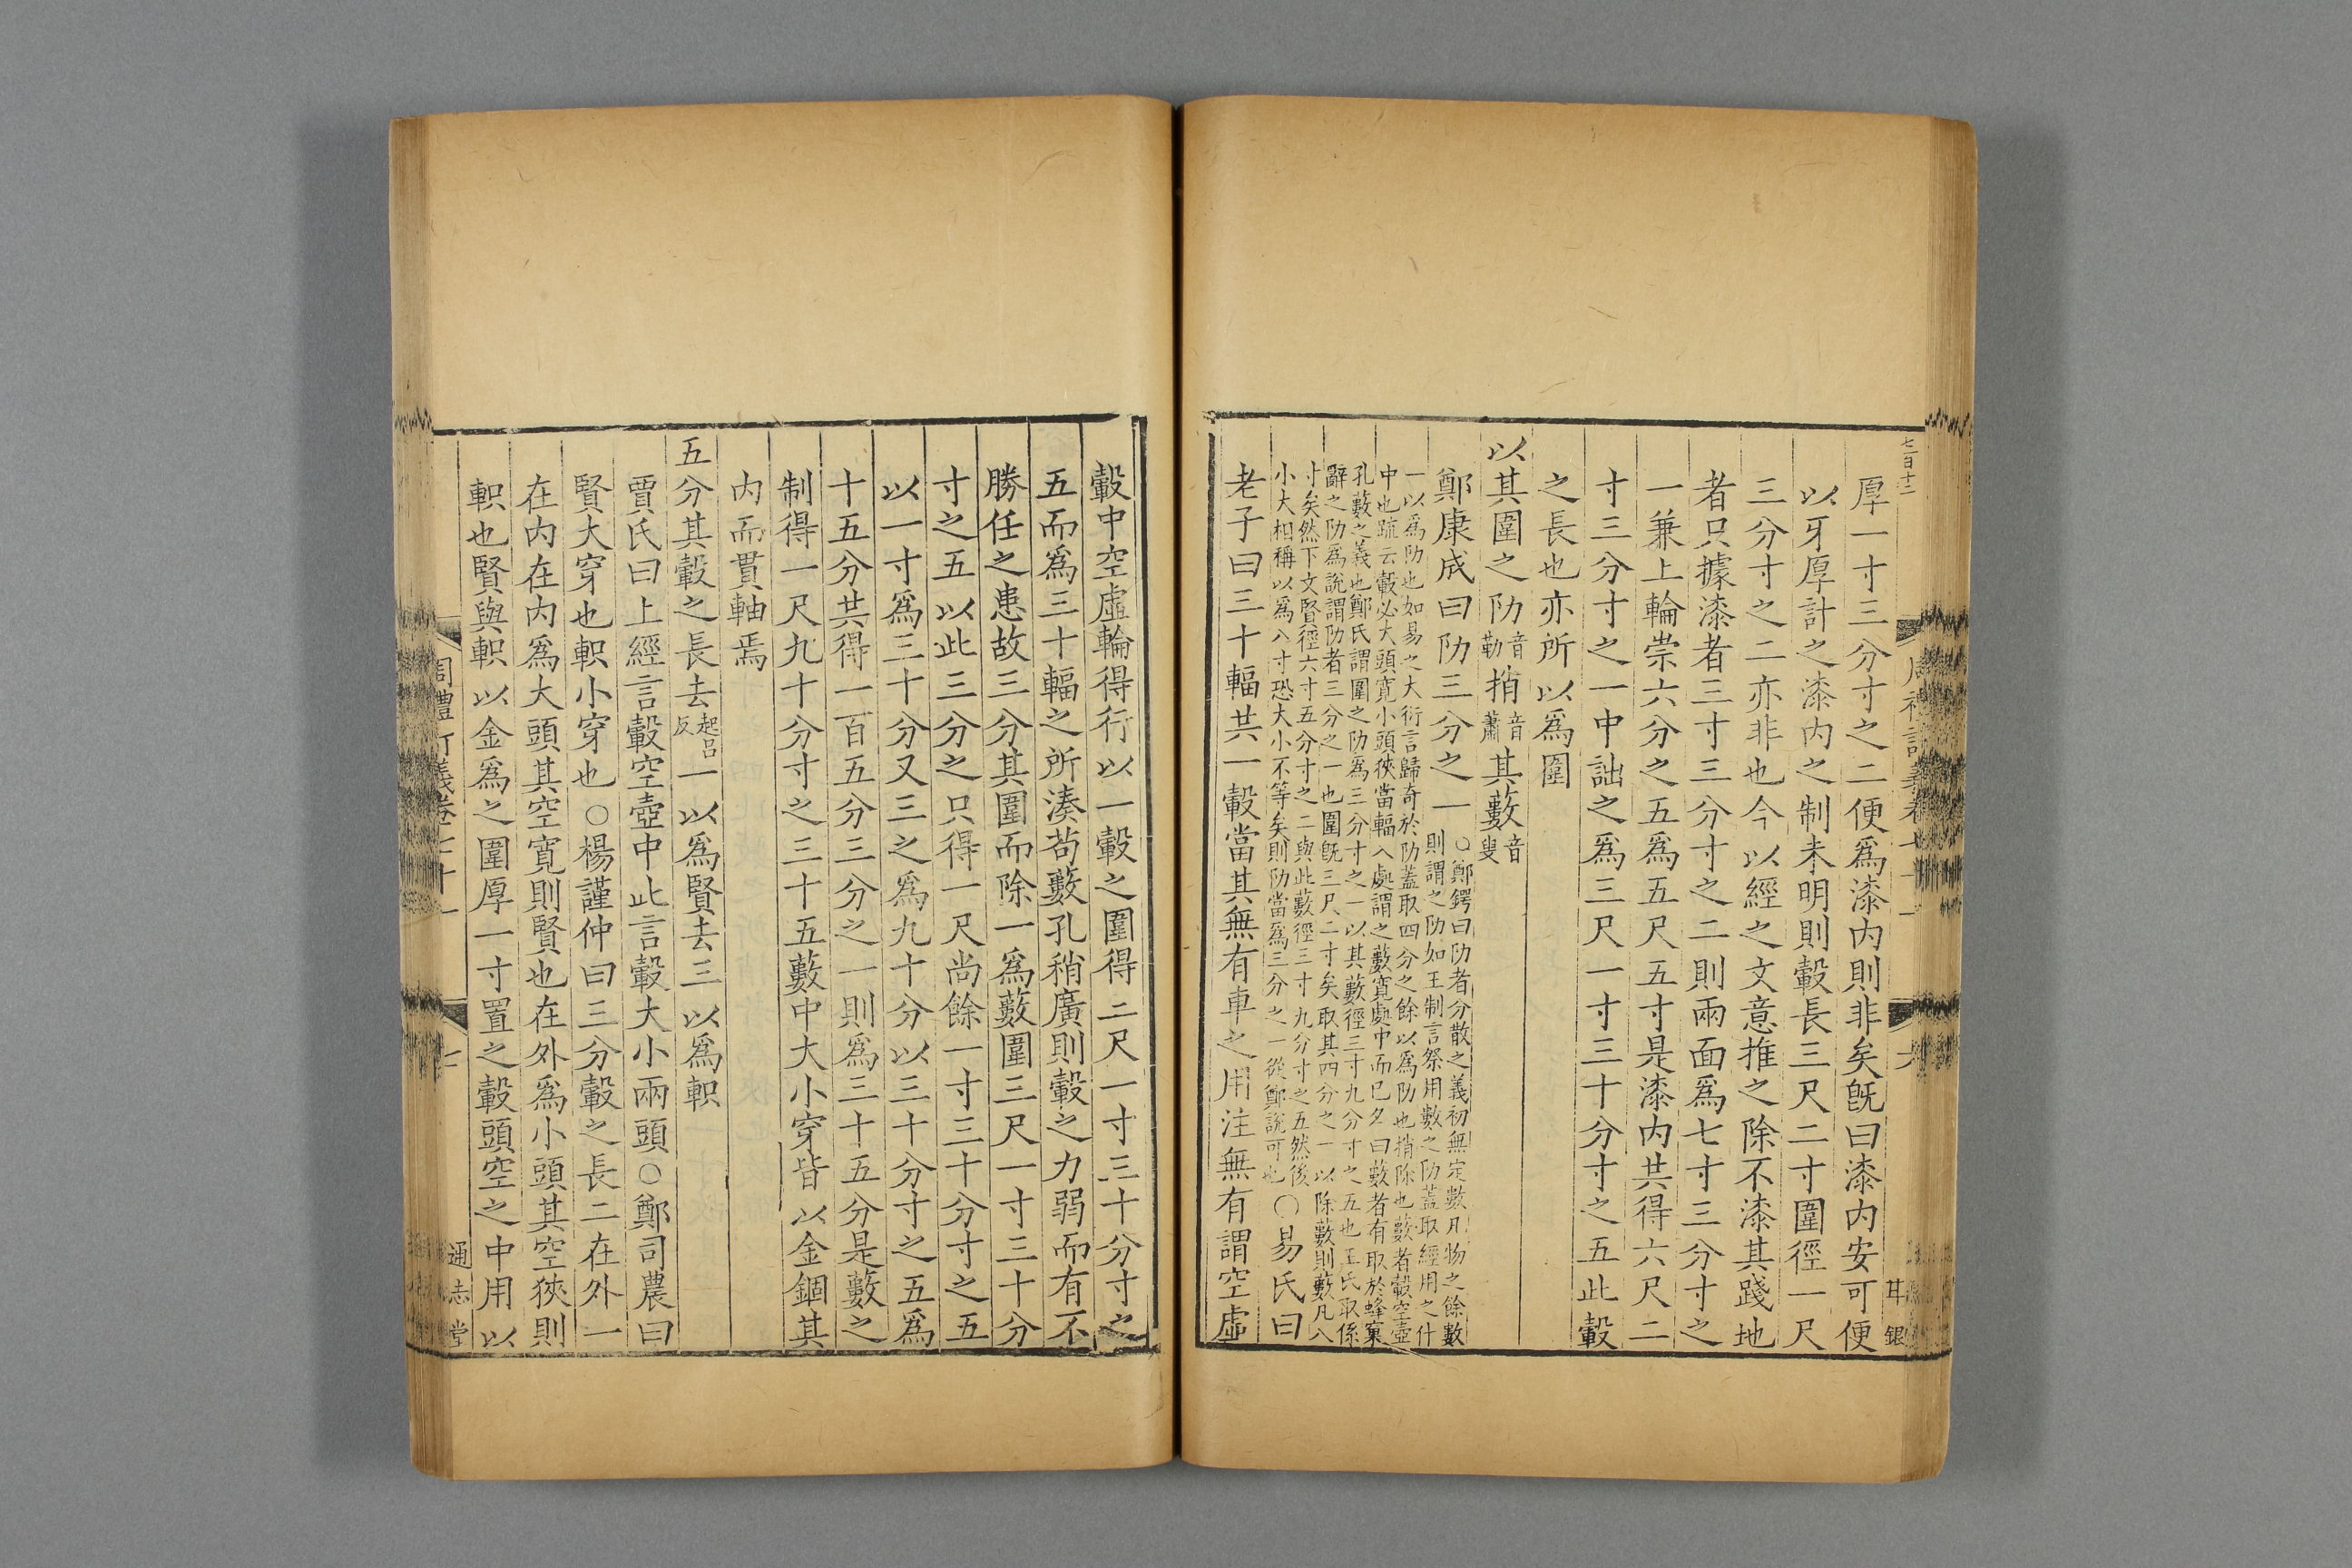 七百十二
厚一寸三分寸之二便為漆内則非矣旣曰漆内安可便
以牙厚計之漆内之制未明則轂長三尺二寸圍徑一尺
三分寸之二亦非也今以經之文意推之除不漆其踐地
者只據漆者三寸三分寸之二則兩面為七寸三分寸之
一兼上輪崇六分之五為五尺五寸是漆内共得六尺二
寸三分寸之一中詘之為三尺一寸三十分寸之五此轂
之長也亦所以為圍
以其圍之阞音勒捎音蕭其藪音叟
鄭康成曰阞三分之一○鄭鍔曰阞者分散之義初無定數凡物之餘數
則謂之阞如王制言祭用數之阞蓋取經用之什
一以為阞也如易之大衍言歸奇於阞蓋取四分之餘以為阞也捎除也藪者轂空壺
中也疏云轂必大頭寬小頭狹當輻入處謂之藪寬處中而已夕曰數者有取於蜂窠
孔藪之義也鄭氏謂圍之阞為三分寸之一以其藪徑三寸九分寸之五也王氏取係
辭之阞為說謂阞者三分之一也圍旣三尺二寸矣取其四分之一以除藪則藪凡八
寸矣然下文賢徑六寸五分寸之二與此藪徑三寸九分寸之五然後
小大相稱以為八寸恐大小不等矣則阞當為三分之一從鄭說可也○易氏曰
老子曰三十輻共一轂當其無有車之用注無有謂空虛
轂中空虛輪得行以一轂之圍得二尺一寸三十分寸之
五而為三十輻之所湊苟藪孔稍廣則轂之力弱而有不
勝任之患故三分其圍而除一為藪圍三尺一寸三十分
寸之五以此三分之只得一尺尚餘一寸三十分寸之五
以一寸為三十分又三之為九十分以三十分寸之五為
十五分共得一百五分三分之一則為三十五分是藪之
制得一尺九十分寸之三十五藪中大小穿皆以金錮其
内而貫軸焉
五分其轂之長去起呂反一以為賢去三以為軹
賈氏曰上經言轂空壺中此言轂大小兩頭○鄭司農曰
賢大穿也軹小穿也○楊謹仲曰三分轂之長二在外一
在内在内為大頭其空寬則賢也在外為小頭其空狹則
軹也賢與軹以金為之圍厚一寸置之轂頭空之中用以
通志堂